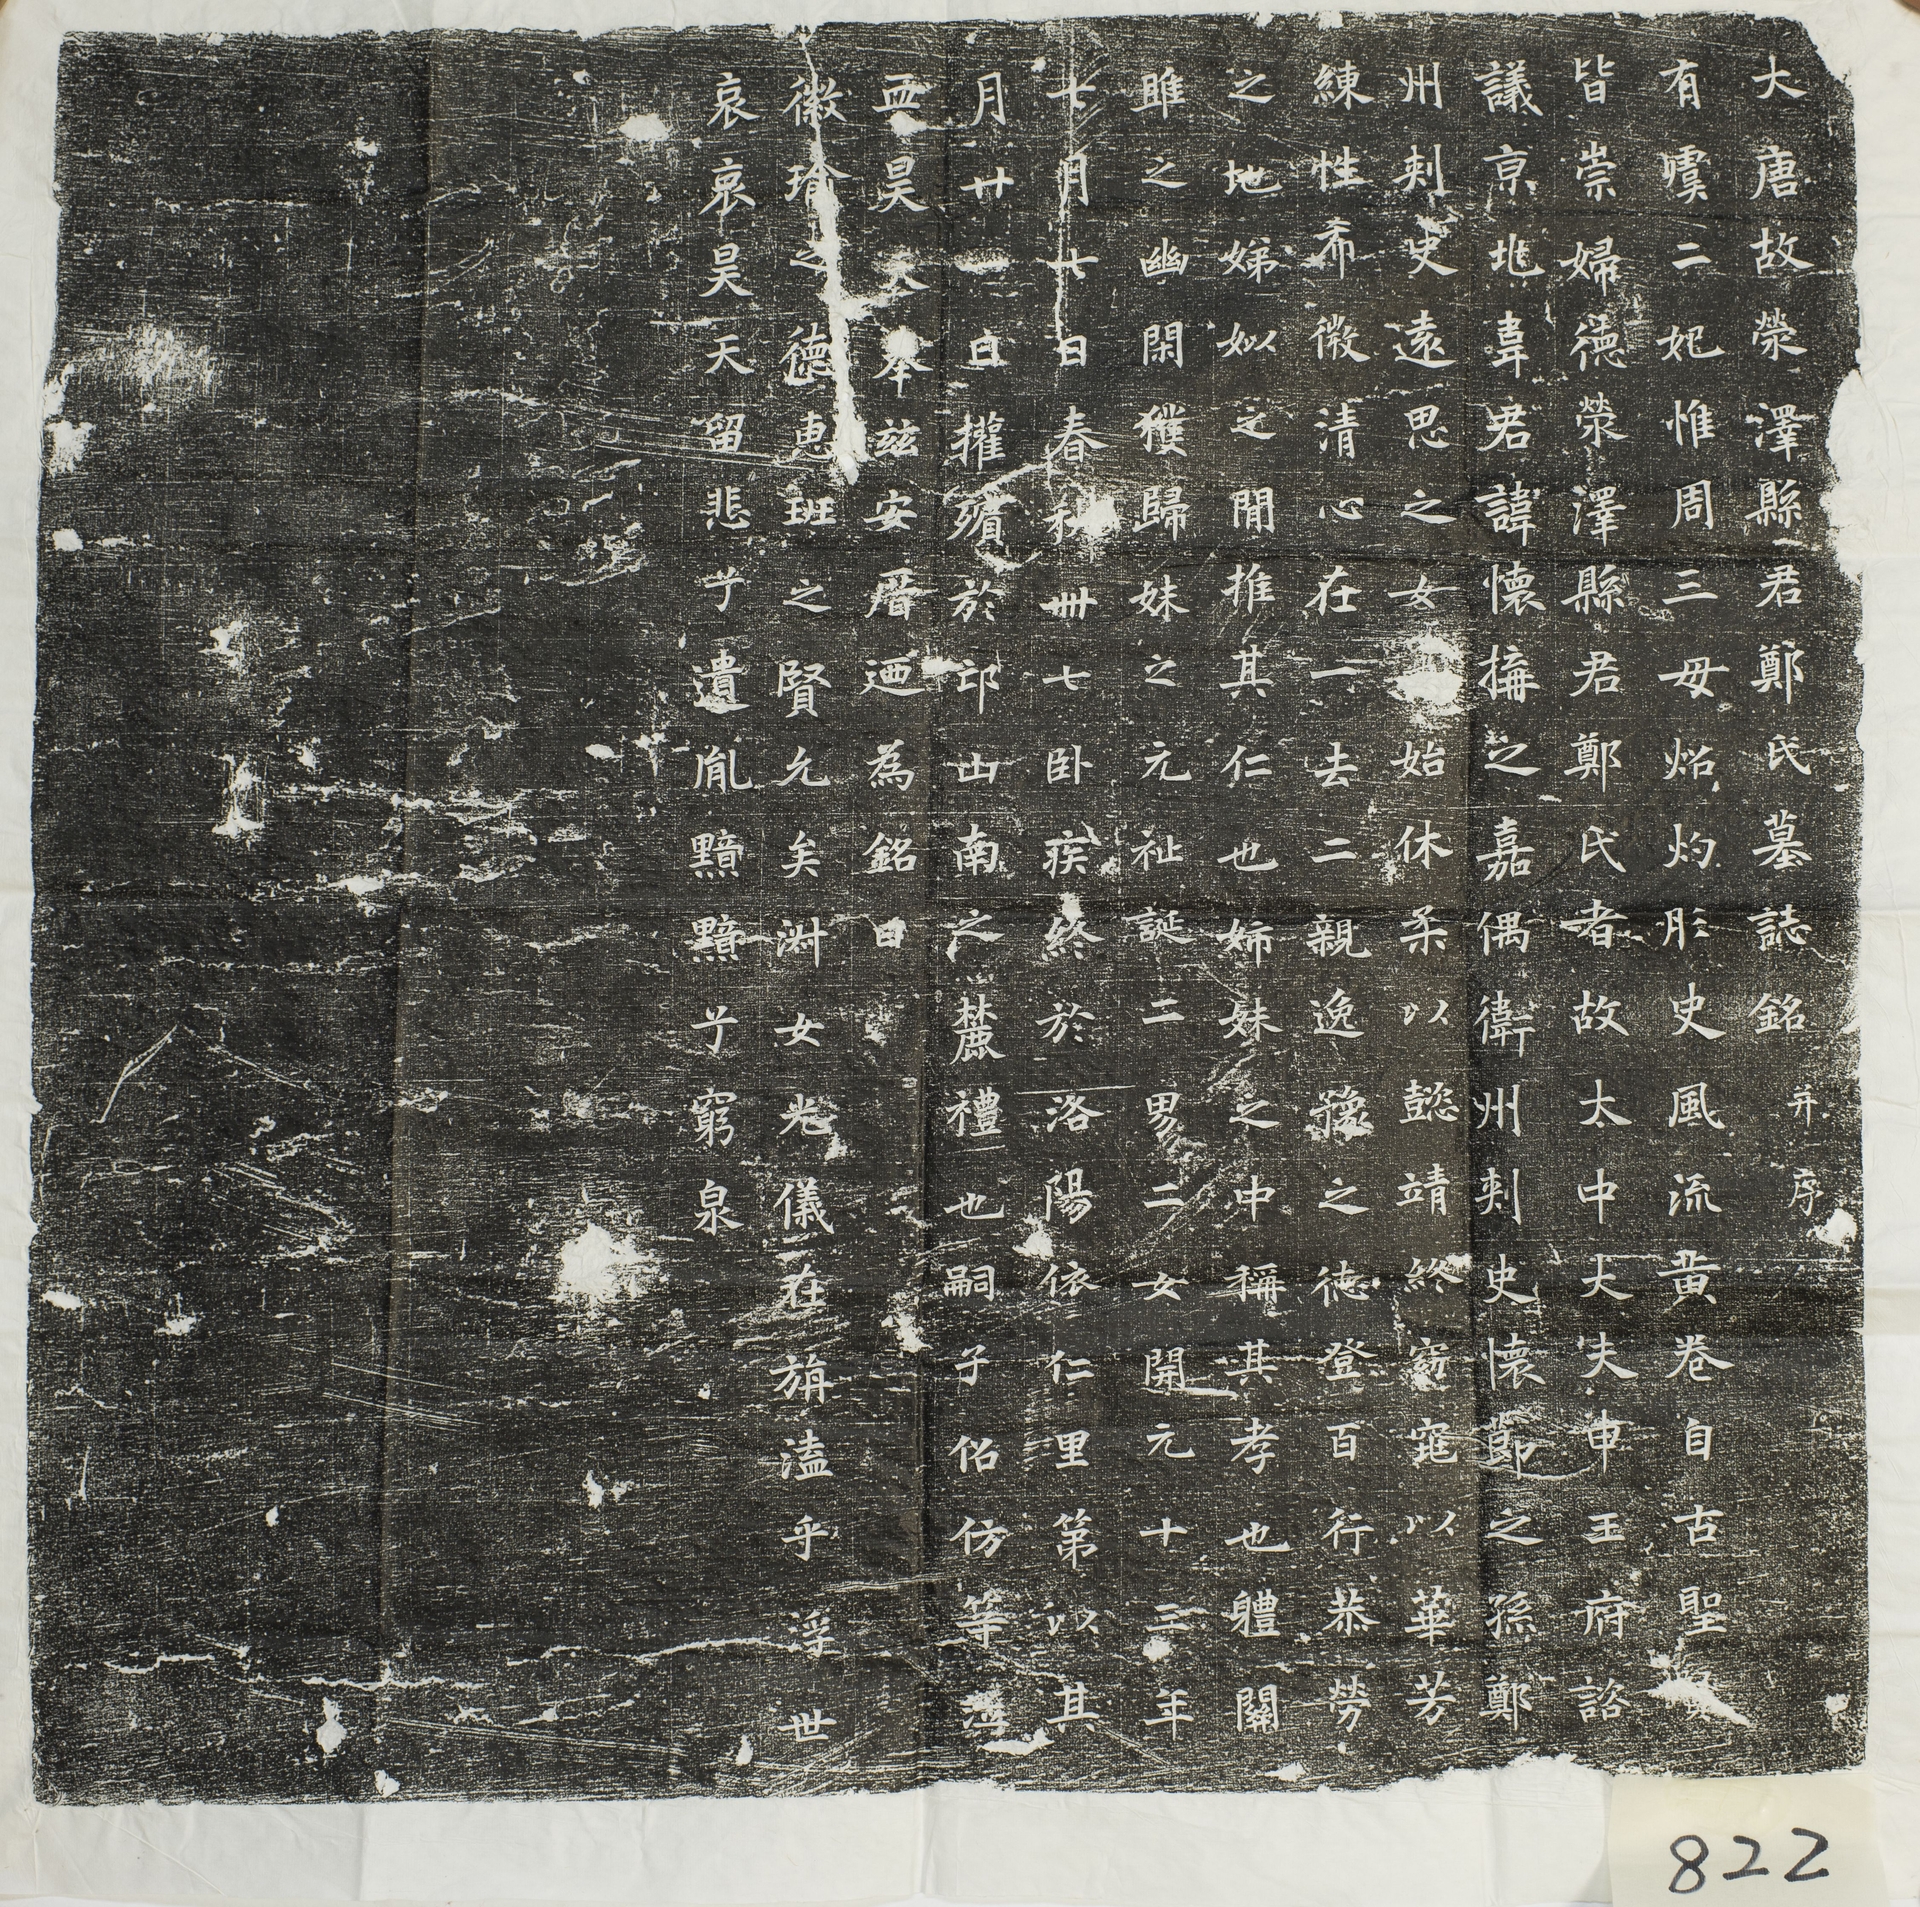 大唐故滎澤縣君鄭氏墓誌銘 并序
有虞二妃惟周三毋炤灼彤史風流黄卷自古聖賢
皆崇婦德滎澤縣君鄭氏者故太中大夫申王府諮
議京兆韋君諱懷撝之嘉偶衛州刺史懷節之孫鄭
州刺史遠思之女始休柔以懿靖終窈窕以華芳
練性希微清心在一去二親逸豫之德登百行恭勞
之地娣姒之閒推其仁也姊妹之中稱其孝也體關
雎之幽閑穫歸妹之元祉誕二男二女開元十三年
七月廿七日春秋卌七卧疾終於洛陽依仁里第以其
月廿一日攉殯於邙山南之麓禮也嗣子佋仿等泣
血昊天奉兹安厝迺為銘曰
徽瑜之德惠班之賢允矣淋女光儀在旃溘乎浮世
哀哀昊天留悲兮遺胤黯黯兮窮泉
822